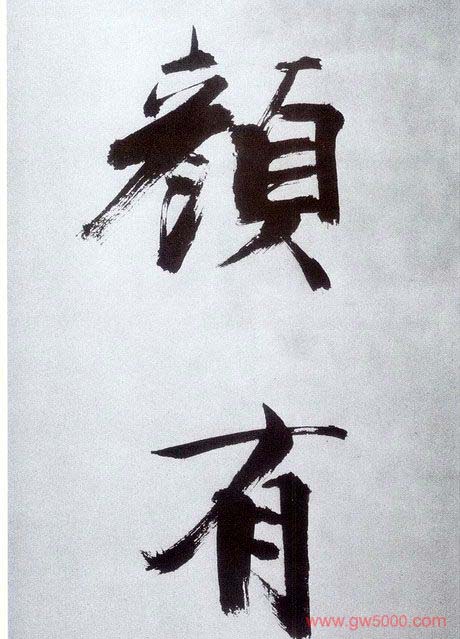 顏
有
www.gw5000.com